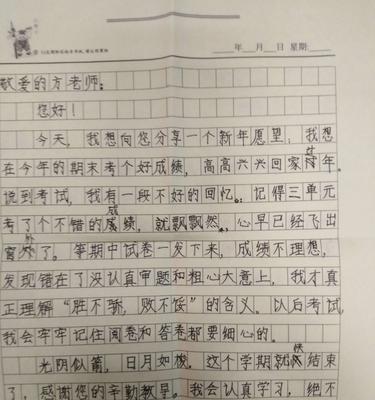 年 月 日 星期
敬爱的方老师：
您好！
今天，我想向您分享一个新年愿望，我想
在今年的期末考个好成绩，高高兴兴回家过年。
说到考试，我有一段不好的回忆。记得三单元
考了个不错的成绩，就飘飘然。心早已经飞出
窗外了。等期中试卷一发下来，成绩不理想，
发现错在了没认真审题和粗心大意上，我才真
正理解“胜不骄，败不馁”的含义。以后考试，
我会牢牢记住阅卷和答卷都要细心的。
光阴似箭，日月如梭。这个学期就快结束
了，感谢您的辛勤教导。我会认真学习，绝不